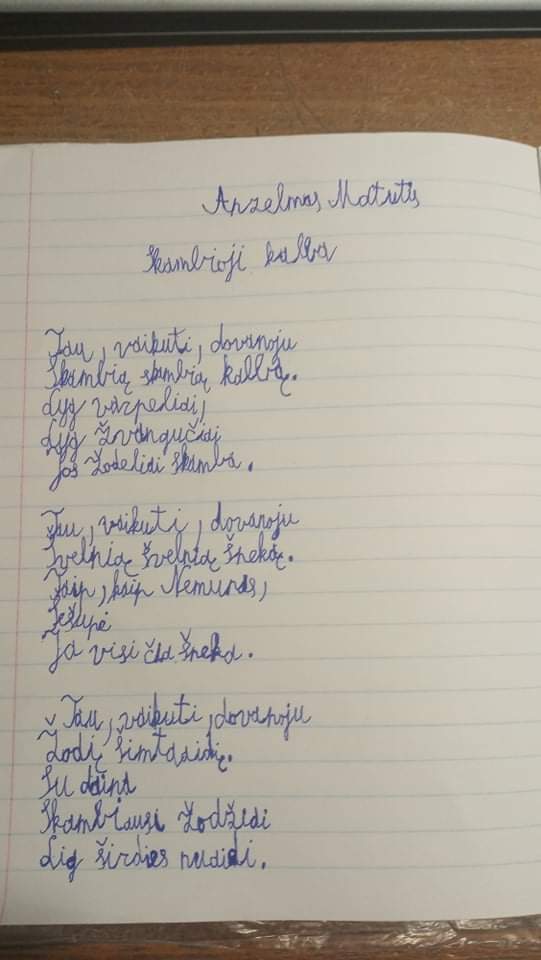 Anzelmas Matutis
Skambioji kalba
Tau, vaikuti, dovanoju
Skambią skambią kalbą.
Lyg varpeliai,
Lyg žvangučiai
Jos žodeliai skamba.
Tau, vaikuti, dovanoju
Švelnią švelnią šneką.
Taip, kaip Nemunas,
Šešupė
Ja visi čia šneka.
Tau, vaikuti, dovanoju
Žodį šimtaaidį.
Su daina
Skambiausi žodžiai
Lig širdies nuaidi.